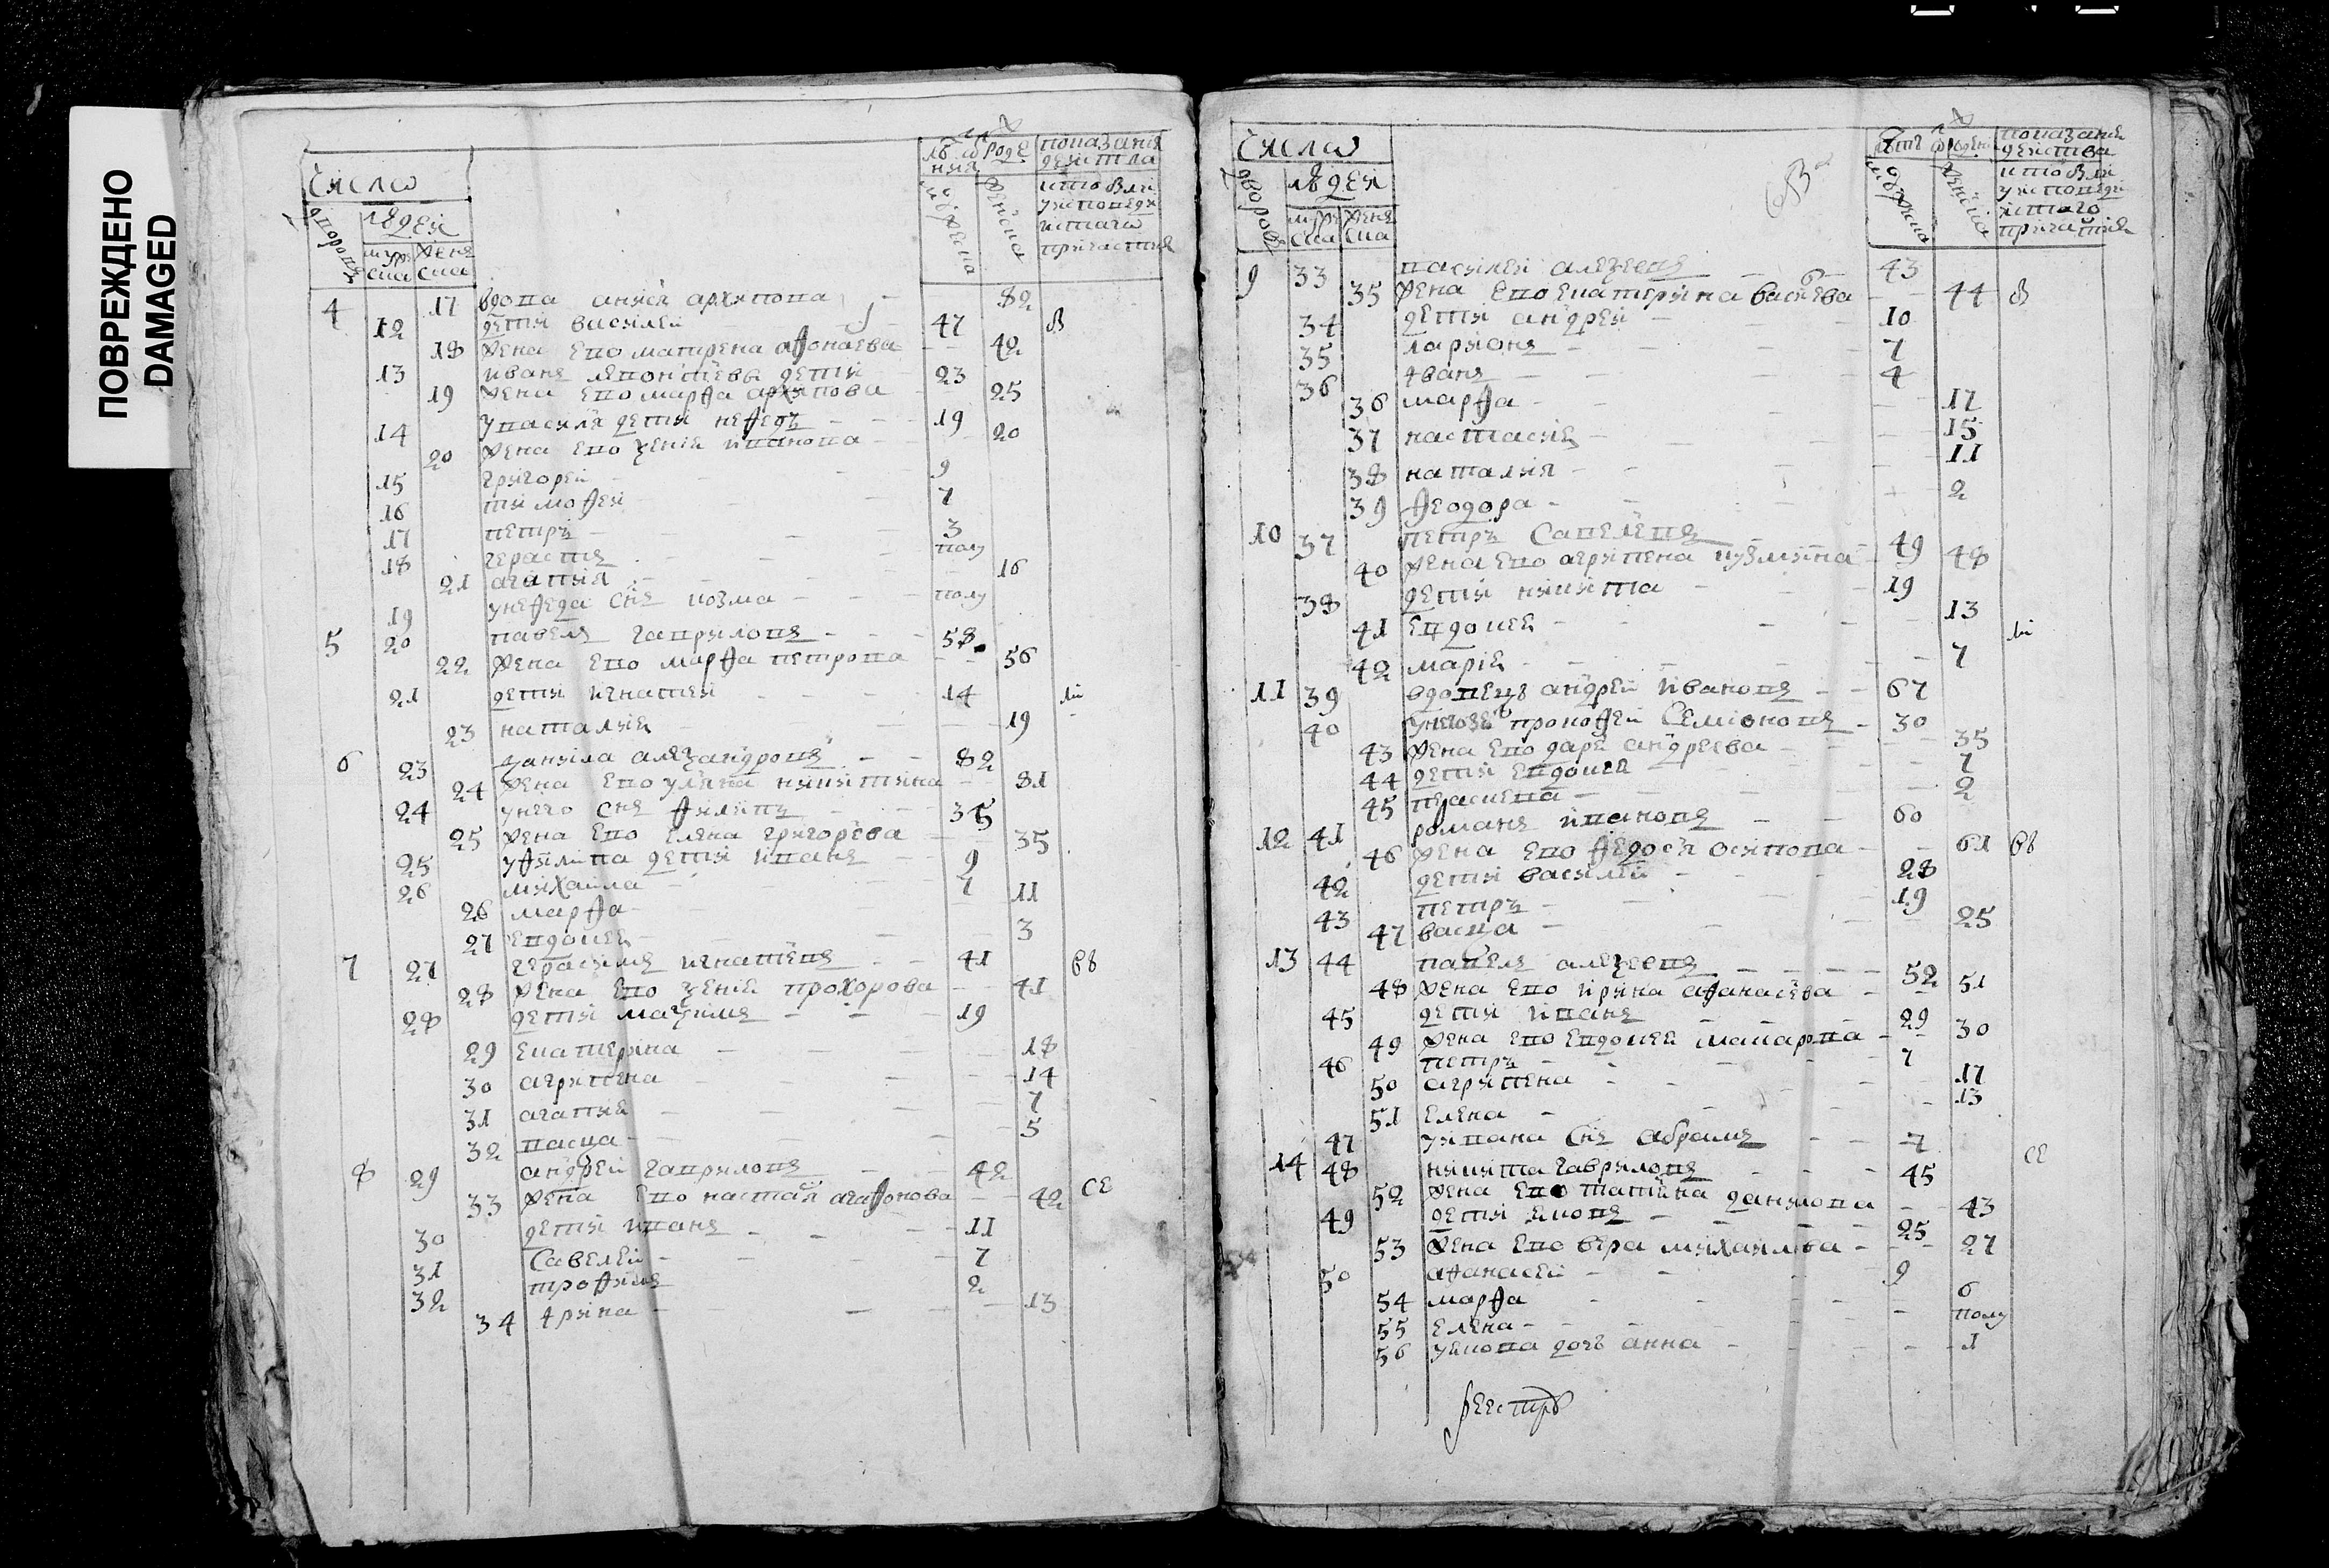 ПОВРЕЖДЕНО
DAMAGED
Число
дворовъ
людей
муже
ска
женя
ска
лѣтъ ѿ роде
ния
мужеска
женска
показания
действа
кто были
у исповеди
и стаго
причастия
4 17 вдова анися архипова 82
12 дети василей 47
18 жена ево матрена афонасева 42
13 иванъ дети 23
19 жена ево марфа архипова 25
14 у василя дети нефедъ 19
20 жена ево зения иванова 20
15 григорей 9
16 тимофей 7
17 петръ 3
18 полу
21 агапия 16
19 у нефеда снъ козма полу
5 20 павелъ гавриловъ 58
22 жена ево марфа петрова 56
21 дети игнатей 14
23 наталия 19
6 23 данила алезандровъ 82
24 жена ево уляна никитина 81
24 у него снъ филипъ 35
25 жена ево елена григорева 35
25 у филипа дети иванъ 9
26 михайла 7
26 марфа 11
27 евдокея 3
7 27 герасимъ игнатевъ 41
28 жена ево зения прохорова 41
28 дети мазимъ 19
29 екатерина 18
30 агрипена 14
31 агапия 7
32 васца 5
8 29 андрей гавриловъ 42
33 жена ево настася агафонова 42 се
30 дети иванъ 11
31 савелей 7
32 трофимъ 2
34 ирина 13
Число
дворовъ
людей
муже
ска
женя
ска
лѣтъ ѿ рождени
мужеска
женска
показания
действа
кто были
у исповеди
и стаго
причастия
9 33 василей алезеевъ 43
35 жена ево екатерина васиева 44
34 дети андрей 10
35 ларионъ 7
36 иванъ 4
36 марфа 17
37 настасия 15
38 наталия 11
39 феодора 2
10 37 петръ савелевъ 49
40 жена ево агрипена кузмина 48
38 дети никита 19
41 евдокея 13
42 мария 7
11 39 вдовецъ андрей ивановъ 67
40 прокофей семионовъ 30
43 жена ево даря андреева 35
44 дети евдокея 7
45 2
12 41 романъ ивановъ 60
46 жена ево федося осипова 61
42 дети василей 28
43 петръ 19
47 васца 25
13 44 павелъ алезеевъ 52
48 жена ево ирина афанасева 51
45 дети иванъ 29
49 жена ево евдокея макарова 30
46 петръ 7
50 агрипена 17
51 елена 13
47 у ивана снъ абрамъ 7
14 48 никита гавриловъ 45 се
52 жена ево татяна данилова 43
49 дети яковъ 25
53 жена ево вера михаилова 27
50 афанасей 9
54 марфа 6
55 елена полу
56 у якова дочь анна 1
реестръ